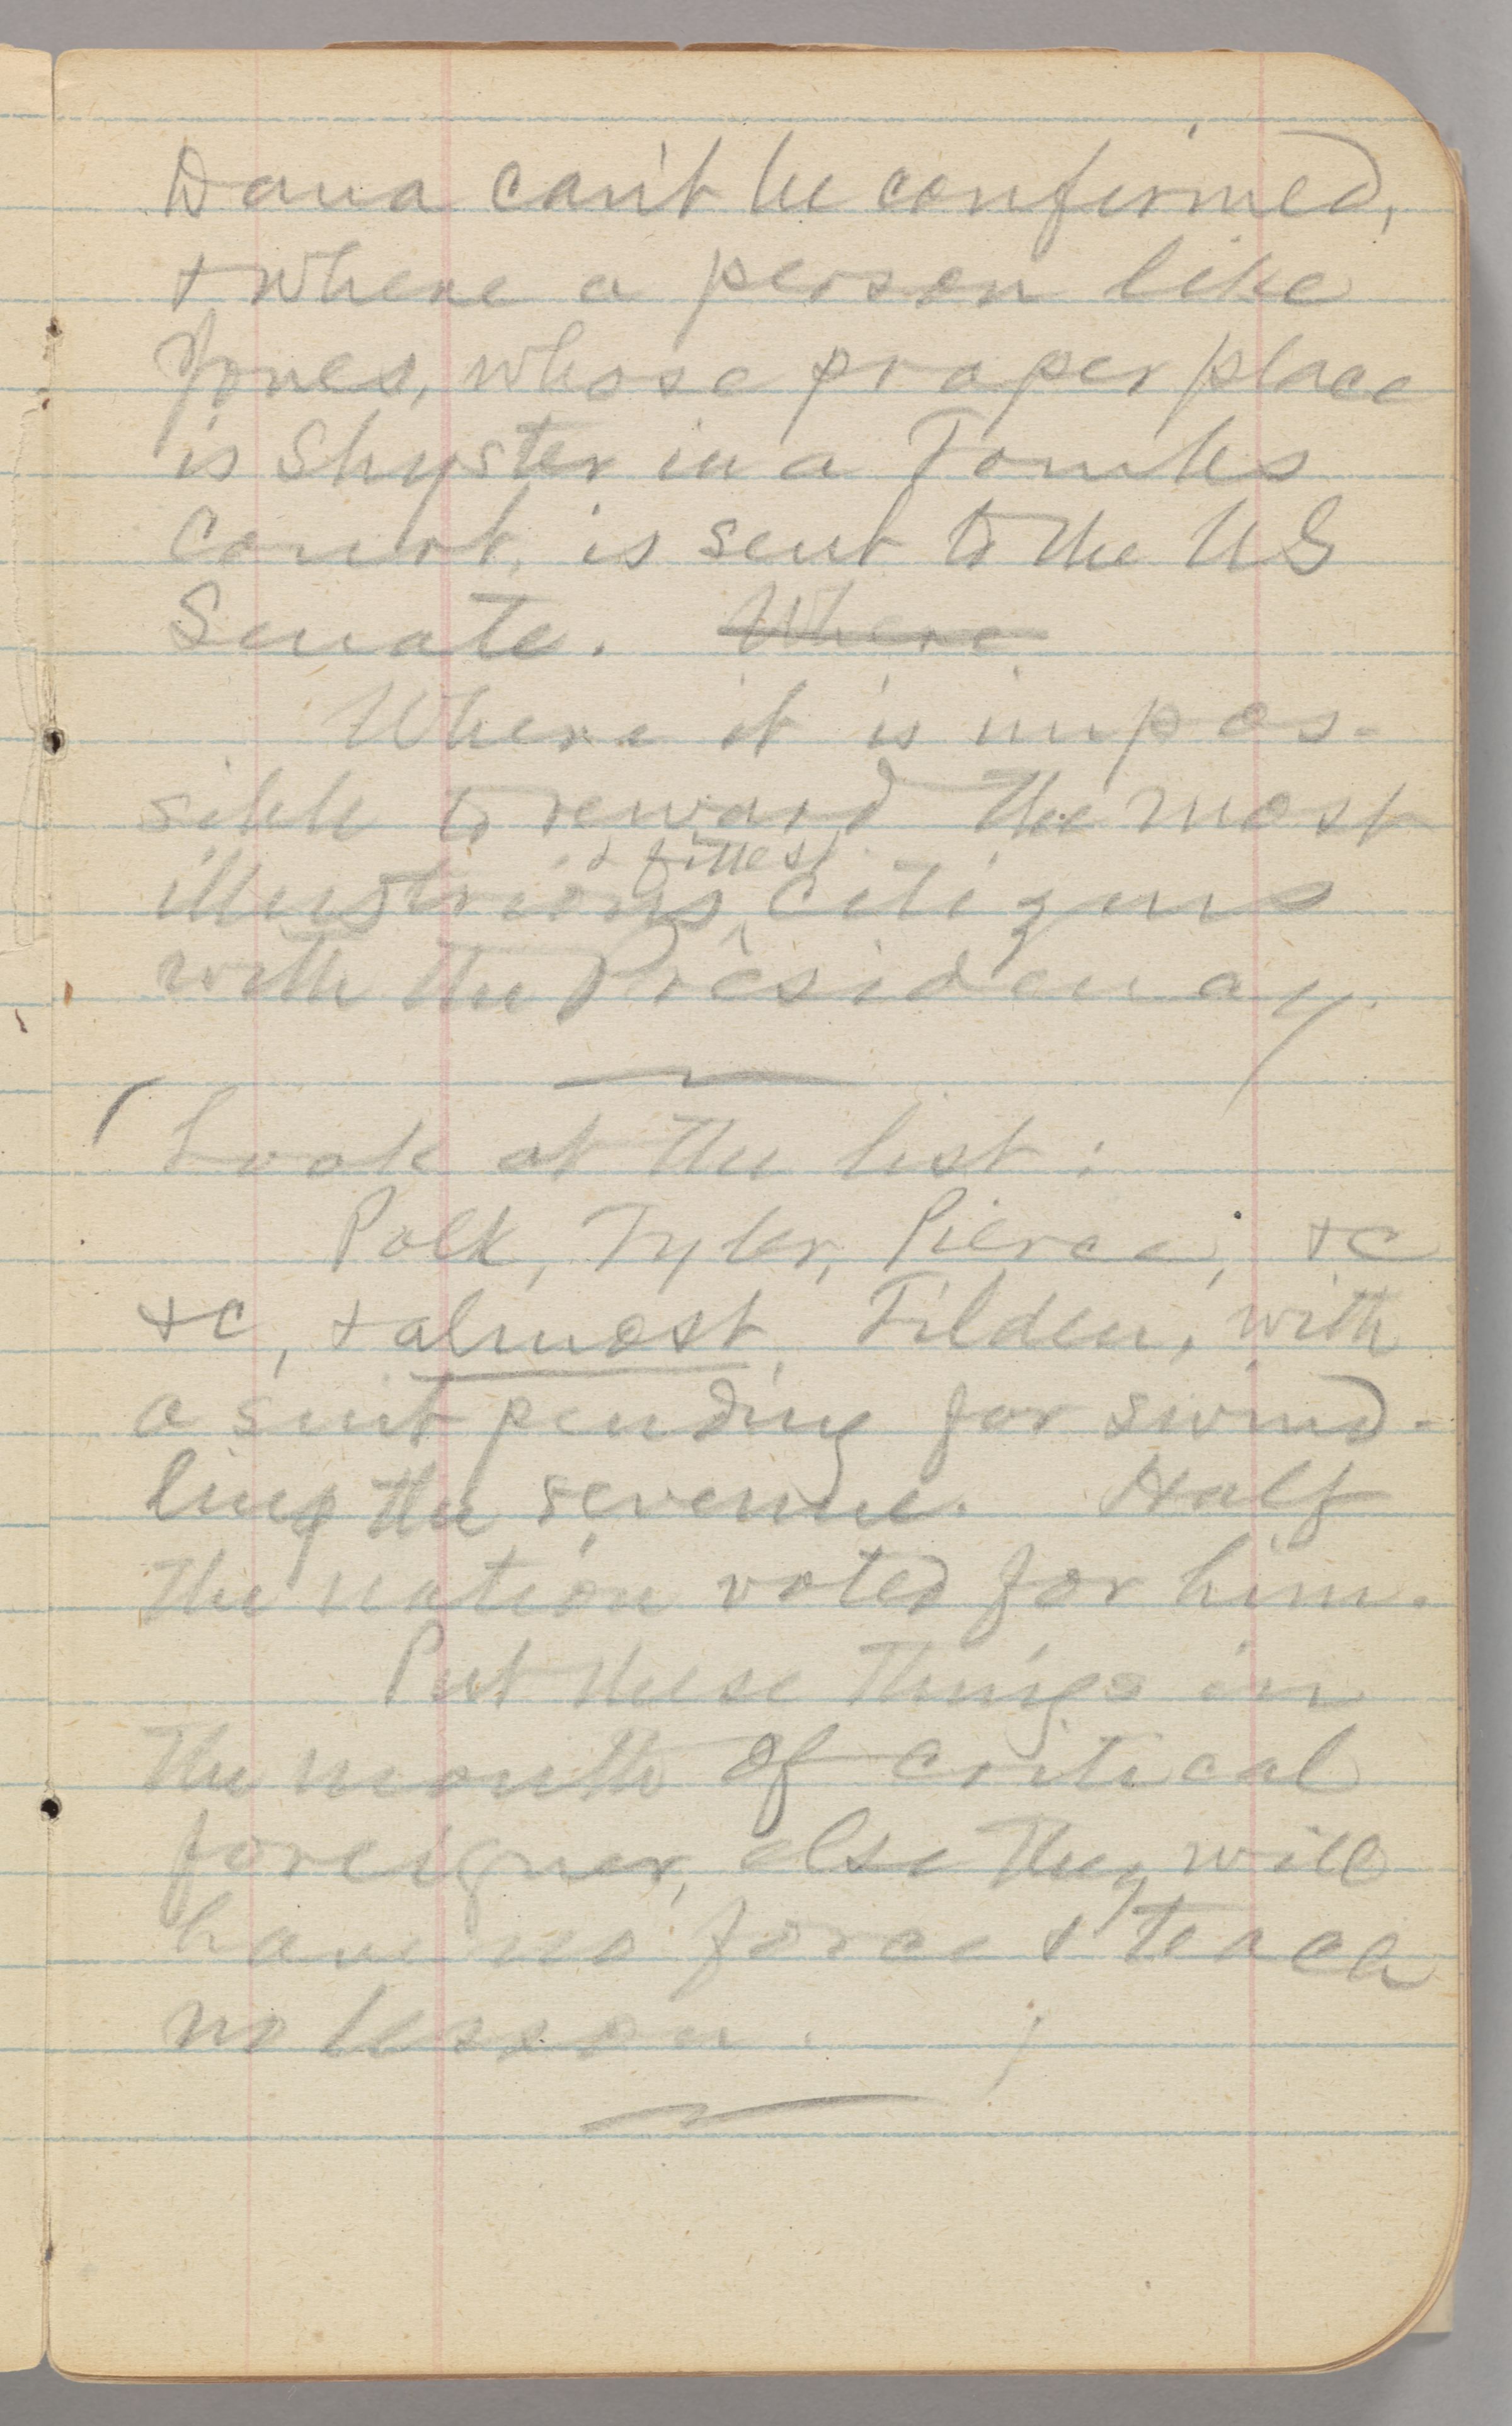 Dana can't be confirmed,
& where a person like
Jones, whose proper place
is shyster in a Tombs
court, is sent to the US
Senate. Where
Where it is impos-
sible to reward the most
& fittest
illustrious citizens
with the Presidency.
Look at the list:
Polk, Tyler, Pierce, &c
&c, & almost, Tilden, with
a suit pending for swind-
ling the revenue. Half
the nation voted for him.
Put these things in
the mouth of critical
foreigner, else they will
have no force & teach
no lesson.